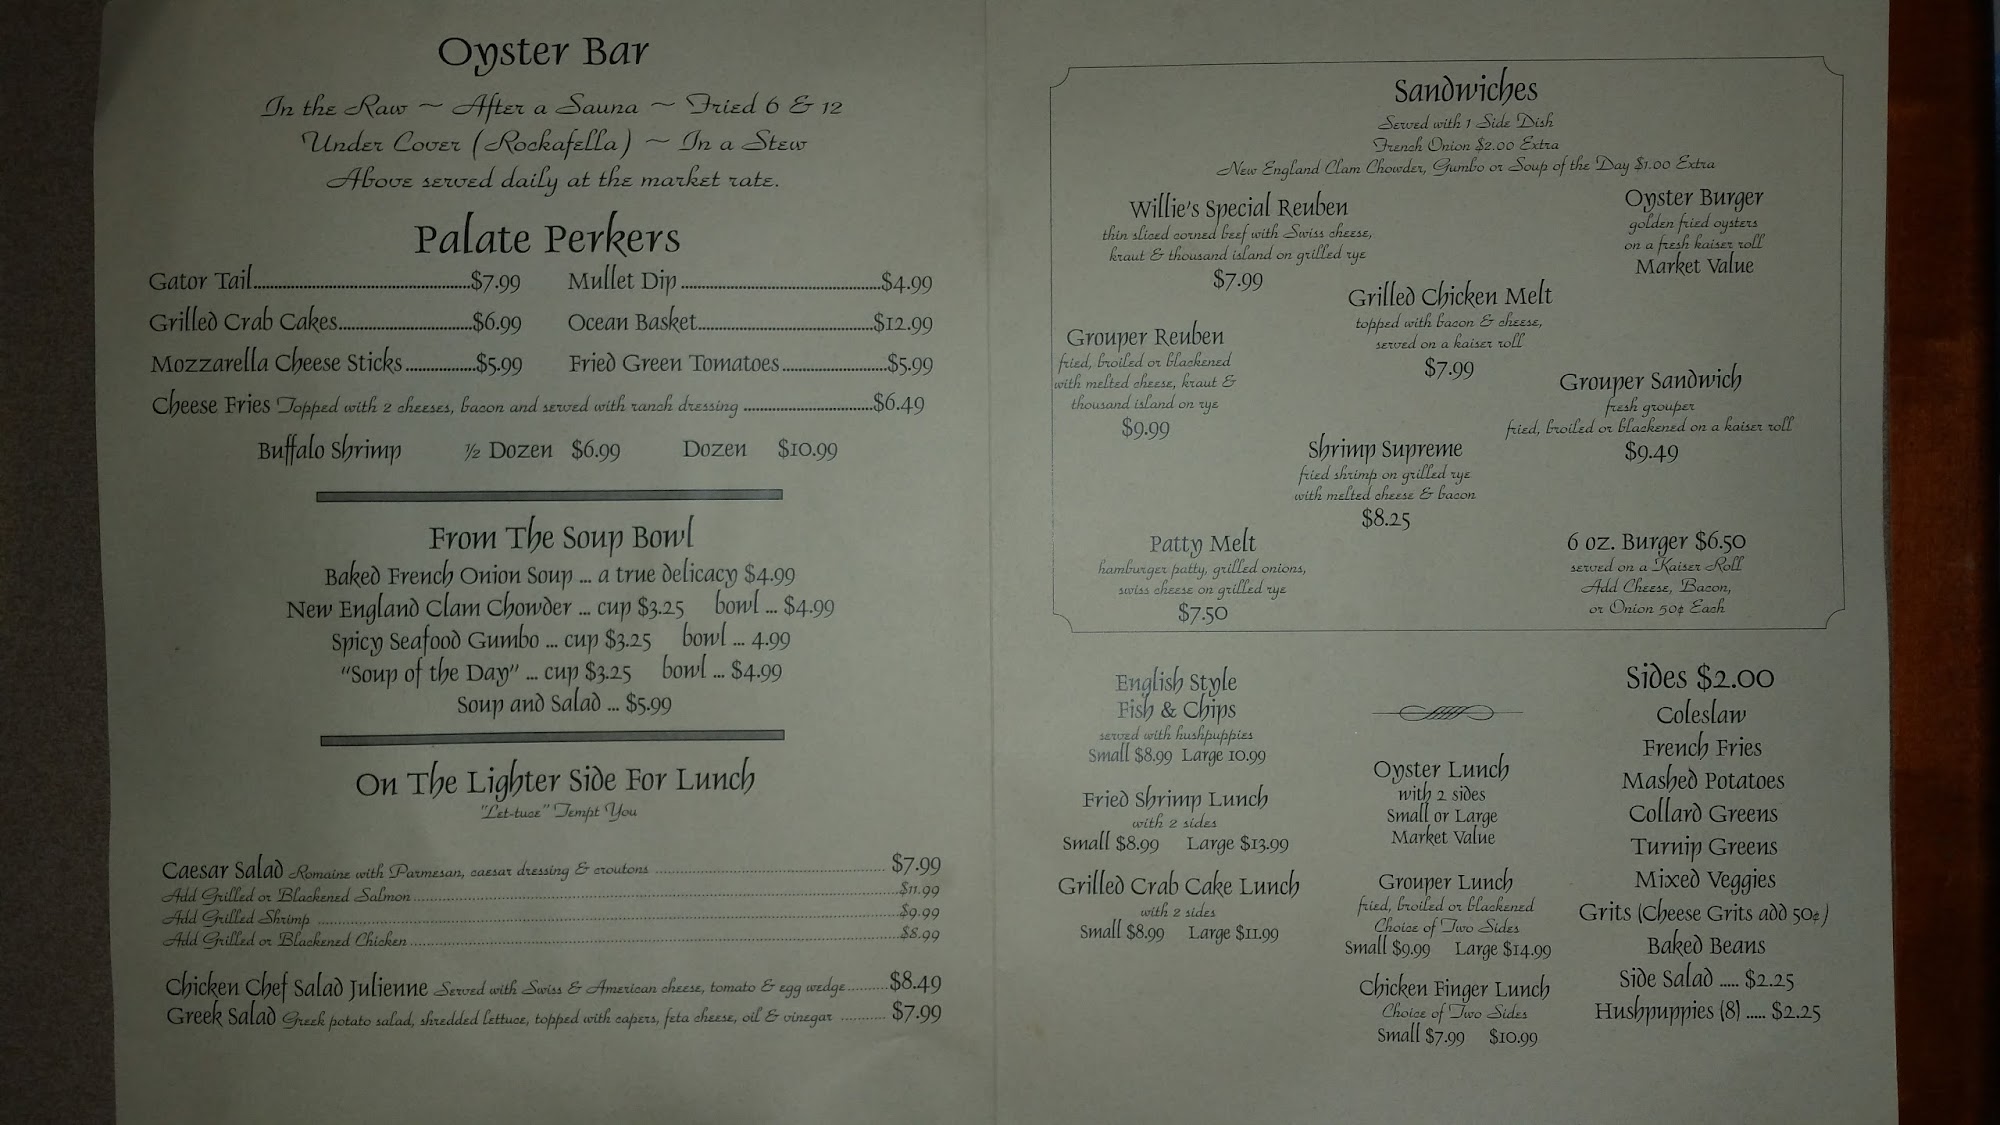 Oyster Bar
In the Raw ~ After a Sauna ~ Fried 6 & 12
Under Cover (Rockafella) ~ In a Stew
Above served daily at the market rate.
Palate Perkers
Gator Tail $7.99 Mullet Dip $4.99
Grilled Crab Cakes $6.99 Ocean Basket $12.99
Mozzarella Cheese Sticks $5.99 Fried Green Tomatoes $5.99
Cheese Fries Topped with 2 cheeses, bacon and served with ranch dressing $6.49
Buffalo Shrimp ½ Dozen $6.99 Dozen $10.99
From The Soup Bowl
Baked French Onion Soup ... a true delicacy $4.99
New England Clam Chowder ... cup $3.25 bowl ... $4.99
Spicy Seafood Gumbo ... cup $3.25 bowl ... 4.99
"Soup of the Day" ... cup $3.25 bowl ... $4.99
Soup and Salad ... $5.99
On The Lighter Side For Lunch
"Let-tuce" Tempt You
Caesar Salad Romaine with Parmesan, caesar dressing & croutons $7.99
Add Grilled or Blackened Salmon $11.99
Add Grilled Shrimp $9.99
Add Grilled or Blackened Chicken $8.99
Chicken Chef Salad Julienne Served with Swiss & American cheese, tomato & egg wedge $8.49
Greek Salad Greek potato salad, shredded lettuce, topped with capers, feta cheese, oil & vinegar $7.99
Sandwiches
Served with 1 Side Dish
French Onion $2.00 Extra
New England Clam Chowder, Gumbo or Soup of the Day $1.00 Extra
Willie's Special Reuben
thin sliced corned beef with Swiss cheese,
kraut & thousand island on grilled rye
$7.99
Oyster Burger
golden fried oysters
on a fresh kaiser roll
Market Value
Grilled Chicken Melt
topped with bacon & cheese,
served on a kaiser roll
$7.99
Grouper Reuben
fried, broiled or blackened
with melted cheese, kraut &
thousand island on rye
$9.99
Grouper Sandwich
fresh grouper
fried, broiled or blackened on a kaiser roll
$9.49
Shrimp Supreme
fried shrimp on grilled rye
with melted cheese & bacon
$8.25
Patty Melt
hamburger patty, grilled onions,
swiss cheese on grilled rye
$7.50
6 oz. Burger $6.50
served on a Kaiser Roll
Add Cheese, Bacon,
or Onion 50¢ Each
English Style
Fish & Chips
served with hushpuppies
Small $8.99 Large 10.99
Fried Shrimp Lunch
with 2 sides
Small $8.99 Large $13.99
Grilled Crab Cake Lunch
with 2 sides
Small $8.99 Large $11.99
Oyster Lunch
with 2 sides
Small or Large
Market Value
Grouper Lunch
fried, broiled or blackened
Choice of Two Sides
Small $9.99 Large $14.99
Chicken Finger Lunch
Choice of Two Sides
Small $7.99 $10.99
Sides $2.00
Coleslaw
French Fries
Mashed Potatoes
Collard Greens
Turnip Greens
Mixed Veggies
Grits (Cheese Grits add 50¢)
Baked Beans
Side Salad ..... $2.25
Hushpuppies (8) ..... $2.25